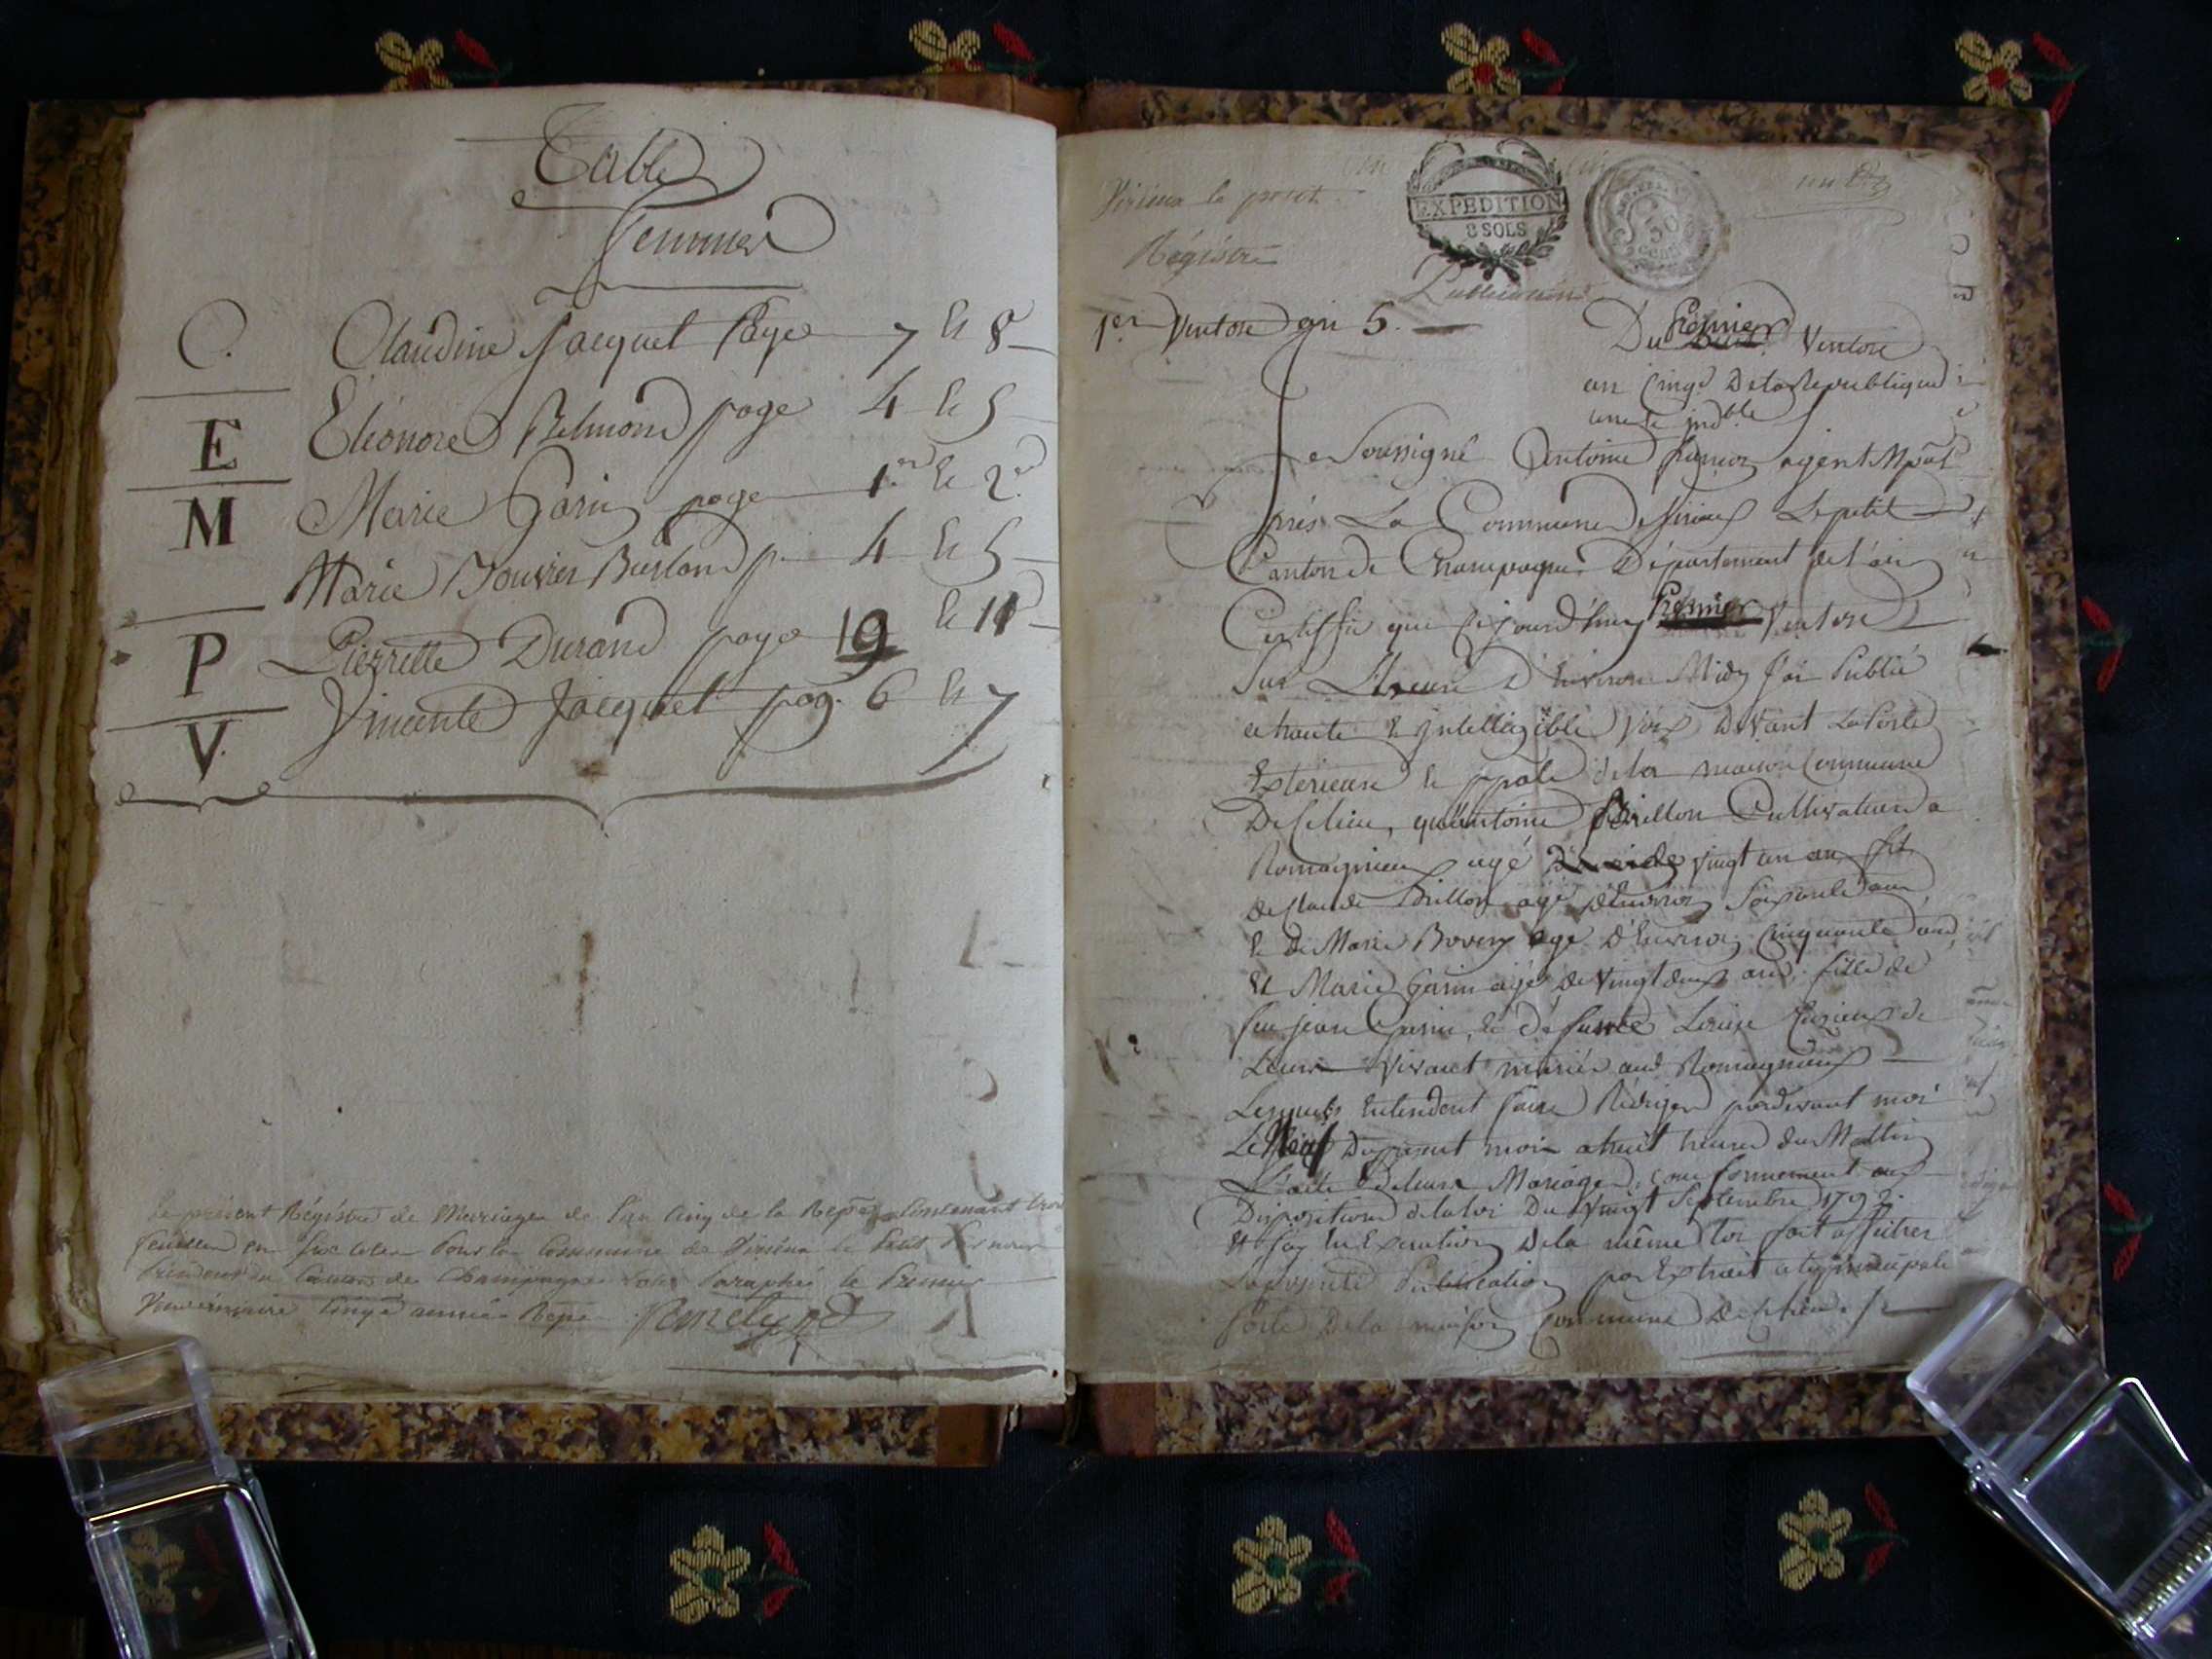 Table
femmes
C. Claudine Jacquet page 7 et 8
E Eléonore Belmond page 4 et 5
M Marie Garin page 1er et 2e
Marie Bouvier Burland p. 4 et 5
P Pierrette Durand page 19 et 11
V. Vincente Jacquet pag. 6 et 7
Le présent Régistre de Mariages de l'an Cinq de la Repe. Contenant trois
feuilles en pour la Commune de Virieux le Petit
Canton de Champagne Paraphé le Premier
Vendémiaire Cinqe année Repe.
Virieux le petit
EXPEDITION
8 SOLS
50
Centi
Régistre
Publications
1er Ventose an 5.
Du Premier Ventose
an Cinqe De la Republique
une et indble
Je Soussigné Antoine agent Mpal
près La Commune de Virieux Le petit
Canton de Champagne Département de l'ain
Certiffie que Cejourd'huy Premier Ventose
Sur L'heure D'Environ Midy J'ai Publié
a haute & jntelligible voix Devant La Porte
Extérieure et ppale de la maison Commune
De Ce lieu, qu'antoine Brillon Cultivateur a
Romagnieux agé De vingt un ans fils
de Claude Brillon agé d'Environ Soixante ans
& De Marie Bovery agé D'Environ Cinquante ans,
Et Marie Garin agé de Vingt deux ans, fille de
feu jean Garin, et défunte Louise de
Leurs Vivant mariés aud. Romagnieux
Lesquels Entendent faire Rédiger pardevant moi
Le Neuf Du present mois a huit heures du Mattin
L'acte de leurs Mariages, conformement aux
Dispositions de la loi Du Vingt Septembre 1792.
Et j'ay En Execution De la même loi fait afficher
La presente Publication par Extrait a la principale
Porte De la maison Commune De Ce lieu.